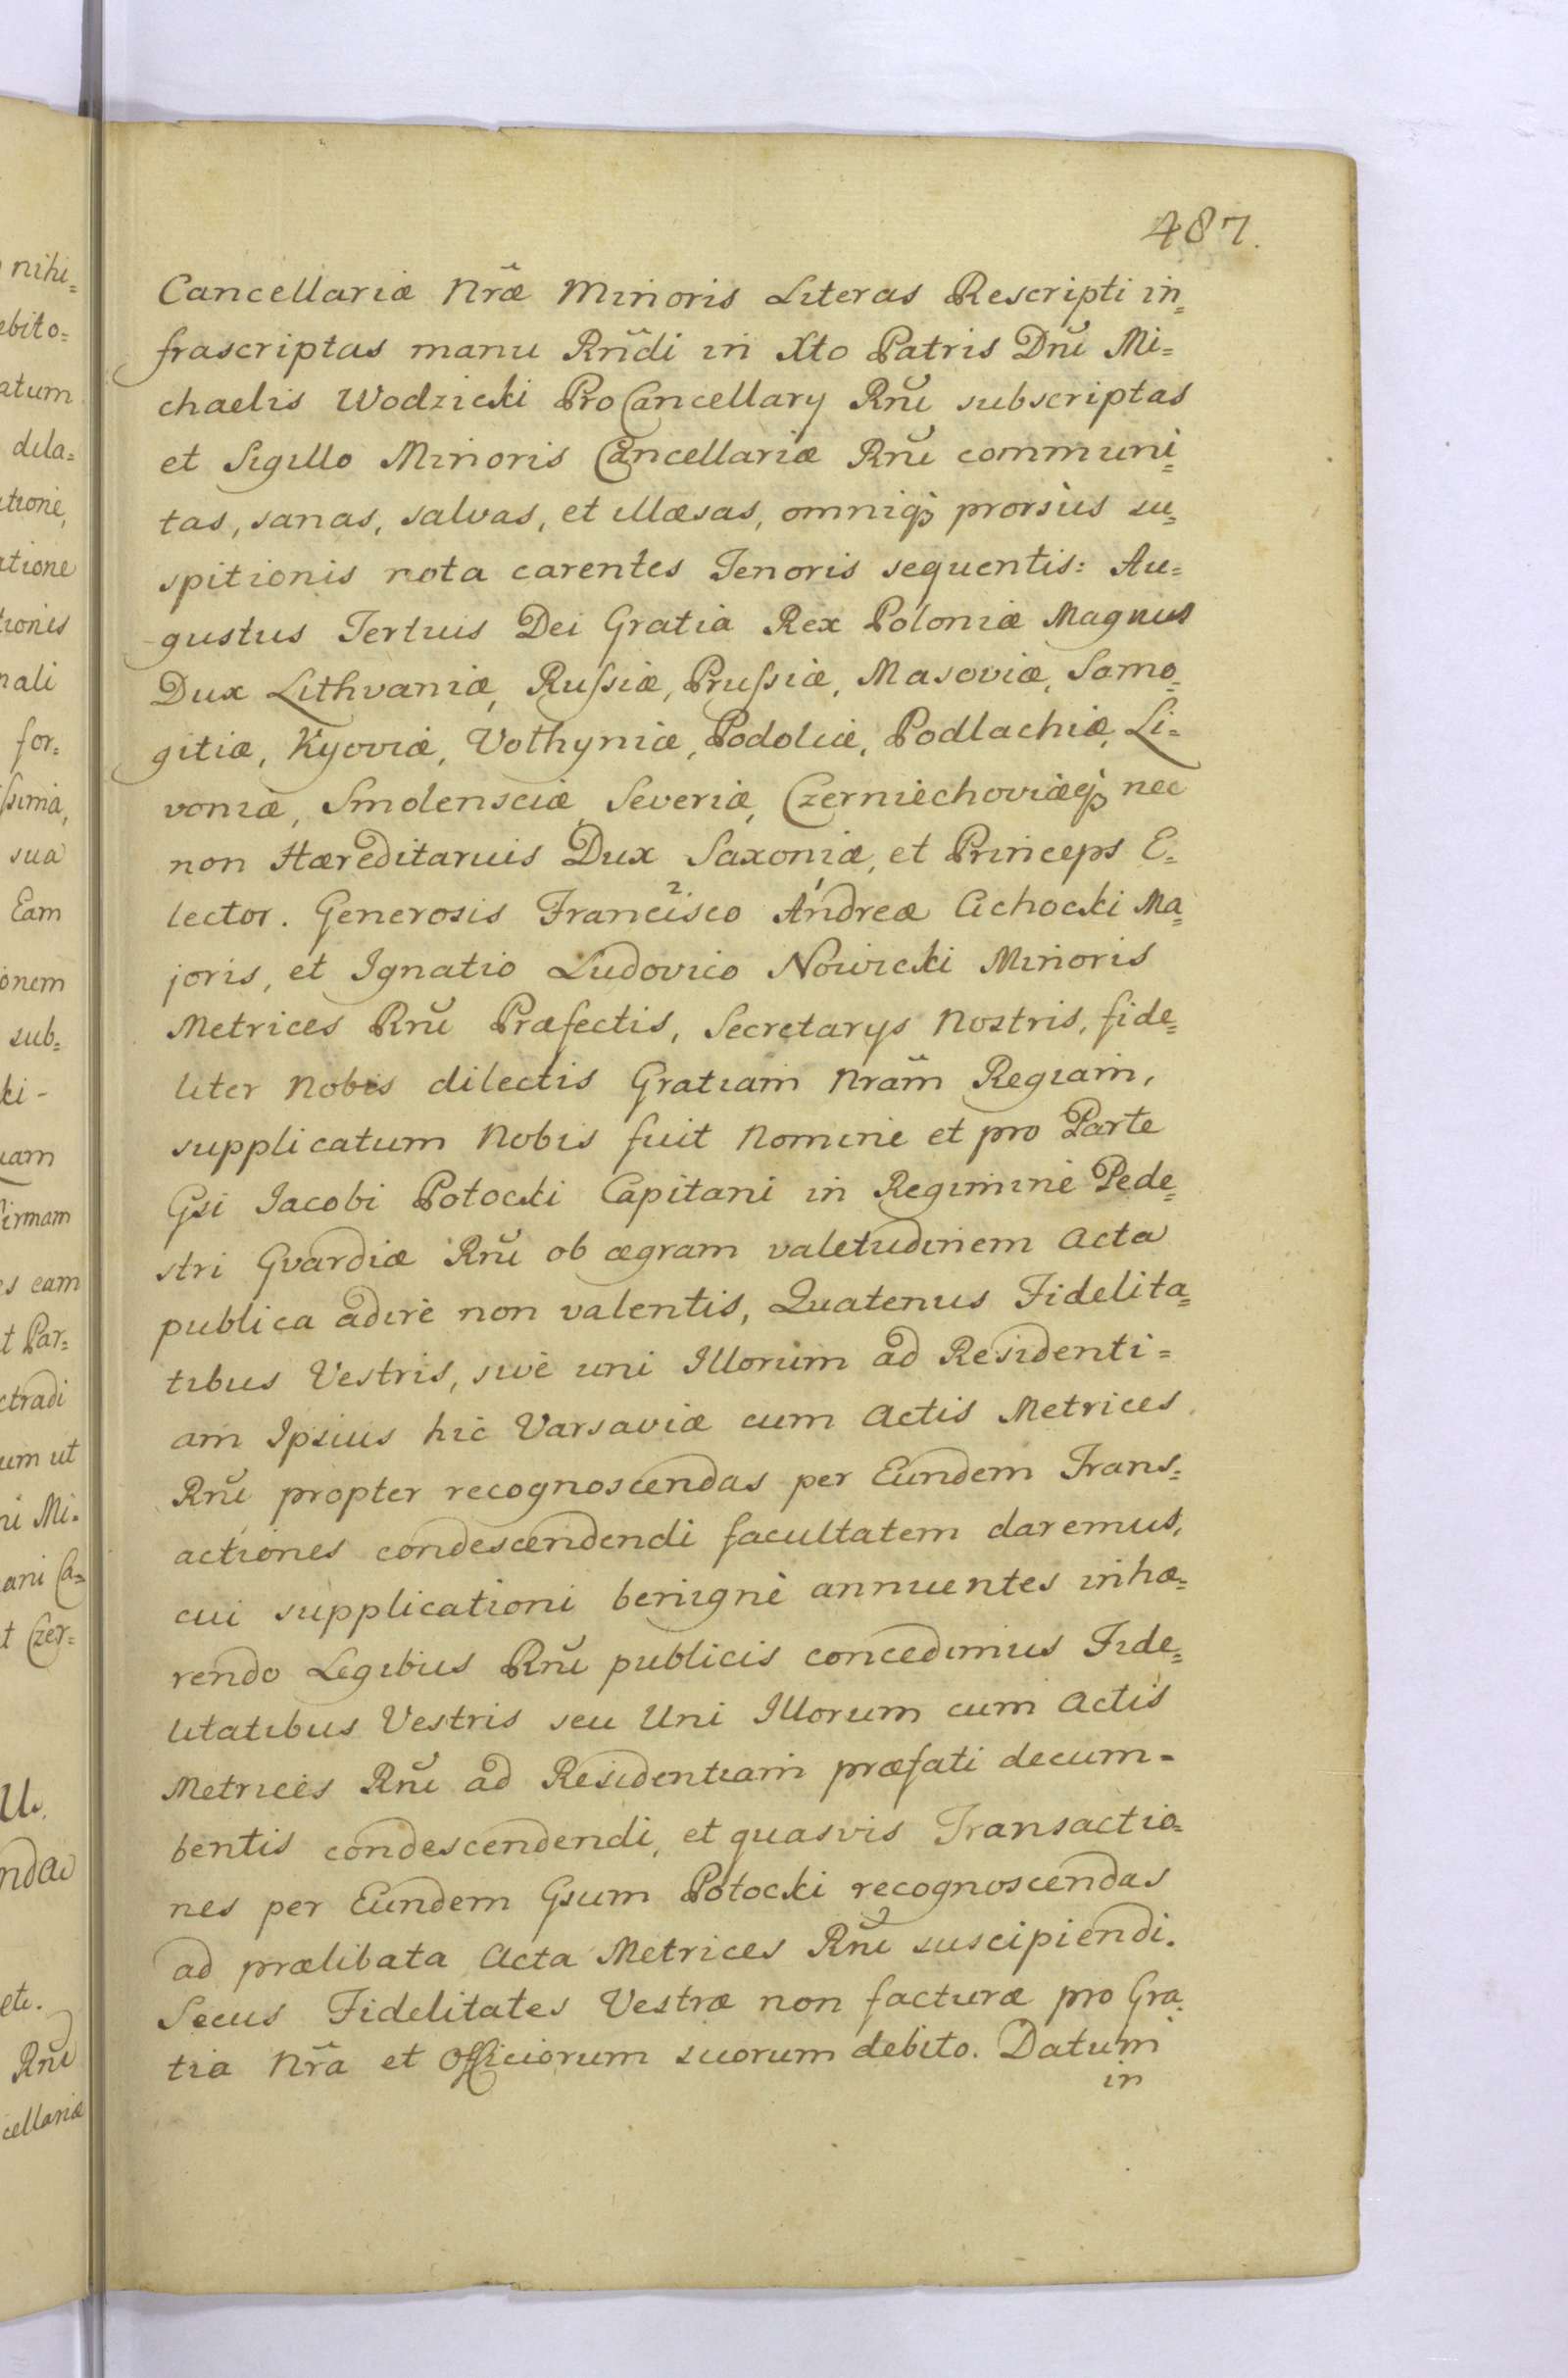 487.
Cancellariæ Nr̃æ Minoris Literas Rescripti in=
frascriptas manu Rñdi in Xto Patris Dñi Mi=
chaelis Wodzicki ProCancellary Rñi subscriptas
et Sigillo Minoris Cancellariæ Rñi communi=
tas, sanas, salvas, et illæsas, omniq; prorsùs su=
spitionis nota carentes Tenoris sequentis: Au=
gustus Tertius Dei Gratia Rex Poloniæ Magnus
Dux Lithvaniæ, Russiæ, Prussiæ, Masoviæ, Samo=
gitiæ, Kyoviæ, Volhyniæ, Podoliæ, Podlachiæ, Li=
voniæ, Smolensciæ, Severiæ, Czerniechoviæq; nec
non Hæreditarius Dux Saxoniæ, et Princeps E=
lector. Generosis Francisco 2. Andreæ 1 Cichocki Ma=
joris, et Ignatio Ludovico Nowicki Minoris
Metrices Rñi Præfectis, Secretarys Nostris, fide=
liter Nobis dilectis Gratiam Nr̃am Regiam,
supplicatum Nobis fuit Nomine et pro Parte
Gsi Jacobi Potocki Capitani in Regimine Pede=
stri Gvardiæ Rñi ob ægram valetudinem Acta
publica adire non valentis, Quatenus Fidelita=
tibus Vestris, sive uni Illorum ad Residenti=
am Ipsius hic Varsaviæ cum Actis Metrices
Rñi propter recognoscendas per Eundem Trans=
actiones condescendendi facultatem daremus,
cui supplicationi benigne annuentes inhæ=
rendo Legibus Rñi publicis concedimus Fide=
litatibus Vestris seu Uni Illorum cum Actis
Metrices Rñi ad Residentiam præfati decum=
bentis condescendendi, et quasvis Transactio=
nes per Eundem Gsum Potocki recognoscendas
ad prælibata Acta Metrices Rñi suscipiendi.
Secus Fidelitates Vestræ non facturæ pro Gra=
tia Nr̃a et Officiorum suorum debito. Datum
in